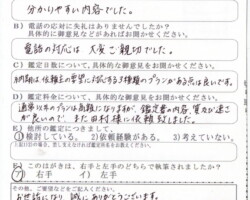 分かりやすい内容でした。
B) 電話の応対に失礼はありませんでしたか？
具体的に御意見などがあればお聞かせください。
電話の対応は大変ご親切でした。
C) 鑑定日数について、具体的な御意見をお聞かせください。
納期は依頼主の希望に添える3種類のプランがある点は良いです。
D) 鑑定料金について、具体的な御意見をお聞かせください。
通常以外のプランは高額になりますが、鑑定書の内容、質など
が良いので、また田村様に依頼致しました。
E) 他所の鑑定につきまして、
1) 検討している。 2) 依頼経験がある。 3) 考えていない。
F) このはがきは、右手と左手のどちらで執筆されましたか？
右手 イ) 左手
その他、ご要望などをご記入ください。
お世話になり誠にありがとうございます。